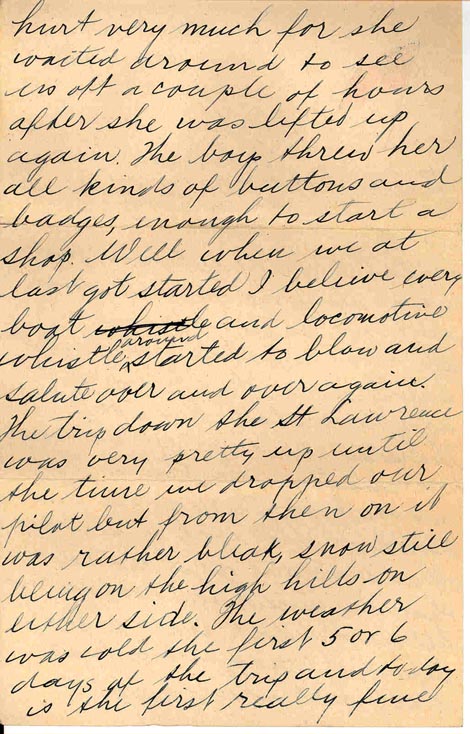 hurt very much for she
waited around to see
us off a couple of hours
after she was lifted up
again. The boys threw her
all kinds of buttons and
badges, enough to start a
shop. Well when we at
last got started I belive every
boat whistle and locomotive
whistle around started to blow and
salute over and over again.
The trip down the St Lawrence
was very pretty up until
the time we dropped our
pilot but from then on it
was rather bleak, snow still
being on the high hills on
either side. The weather
was cold the first 5 or 6
days of the trip and today
is the first really fine